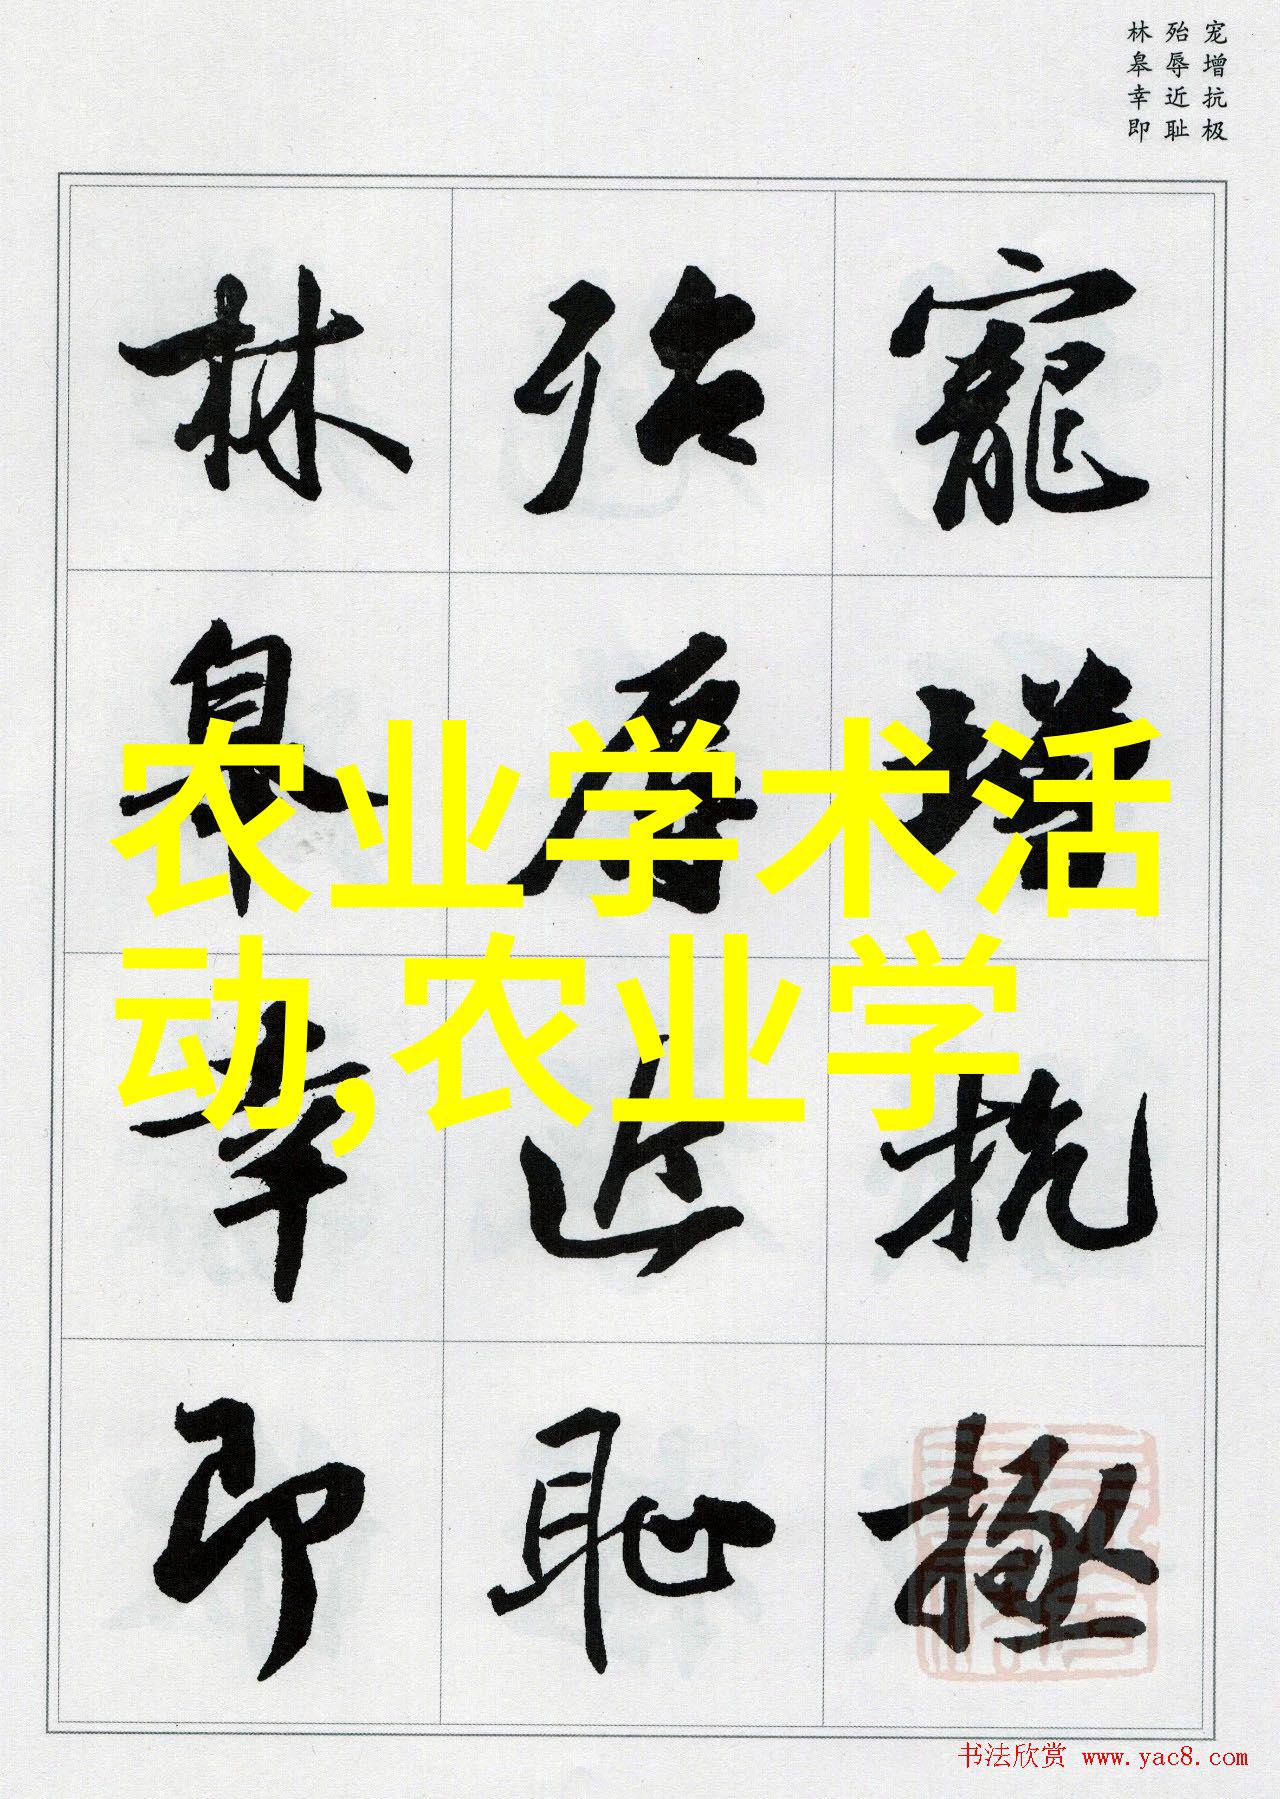 宠增抗极
殆辱近耻
林皋幸即
寵增抗極
殆辱近恥
林皋幸即
农业学术活
动,农业学
书法欣赏 www.yac8.com